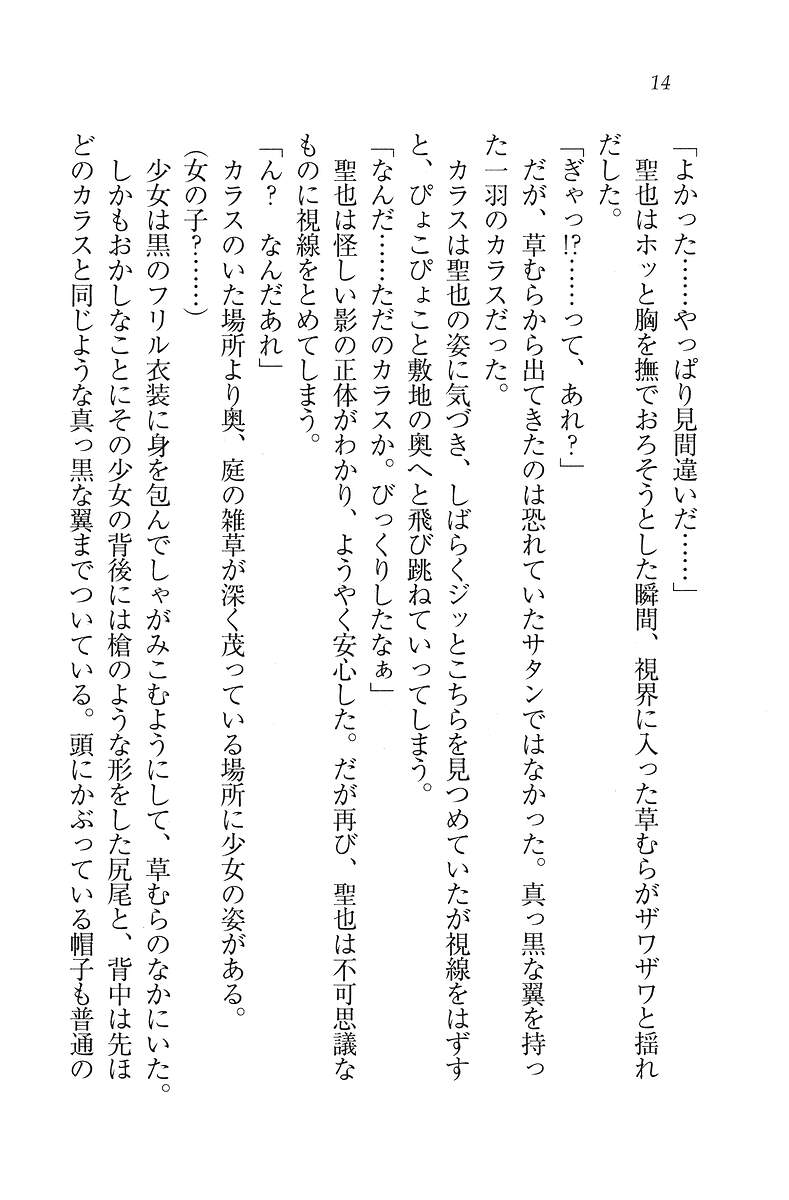 14
「よかった……やっぱり見間違いだ……」
　聖也はホッと胸を撫でおろそうとした瞬間、視界に入った草むらがザワザワと揺れ
だした。
「ぎゃっ!?……って、あれ？」
　だが、草むらから出てきたのは恐れていたサタンではなかった。真っ黒な翼を持っ
た一羽のカラスだった。
　カラスは聖也の姿に気づき、しばらくジッとこちらを見つめていたが視線をはずす
と、ぴょこぴょこと敷地の奥へと飛び跳ねていってしまう。
「なんだ……ただのカラスか。びっくりしたなぁ」
　聖也は怪しい影の正体がわかり、ようやく安心した。だが再び、聖也は不可思議な
ものに視線をとめてしまう。
「ん？　なんだあれ」
　カラスのいた場所より奥、庭の雑草が深く茂っている場所に少女の姿がある。
（女の子？……）
　少女は黒のフリル衣装に身を包んでしゃがみこむようにして、草むらのなかにいた。
　しかもおかしなことにその少女の背後には槍のような形をした尻尾と、背中は先ほ
どのカラスと同じような真っ黒な翼までついている。頭にかぶっている帽子も普通の